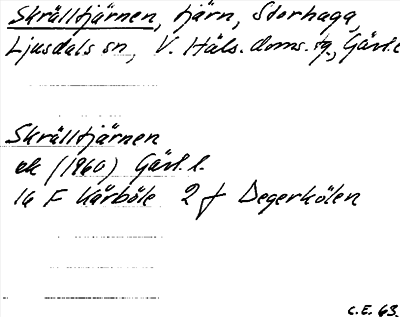 Skrälltjärnen, tjärn, Storhaga,
Ljusdals sn, V. Häls. doms. tg, Gävl.l
Skrälltjärnen
ek (1960) Gävl. l.
16 F Kårböle 2 f Degerkölen
C.E. 63.